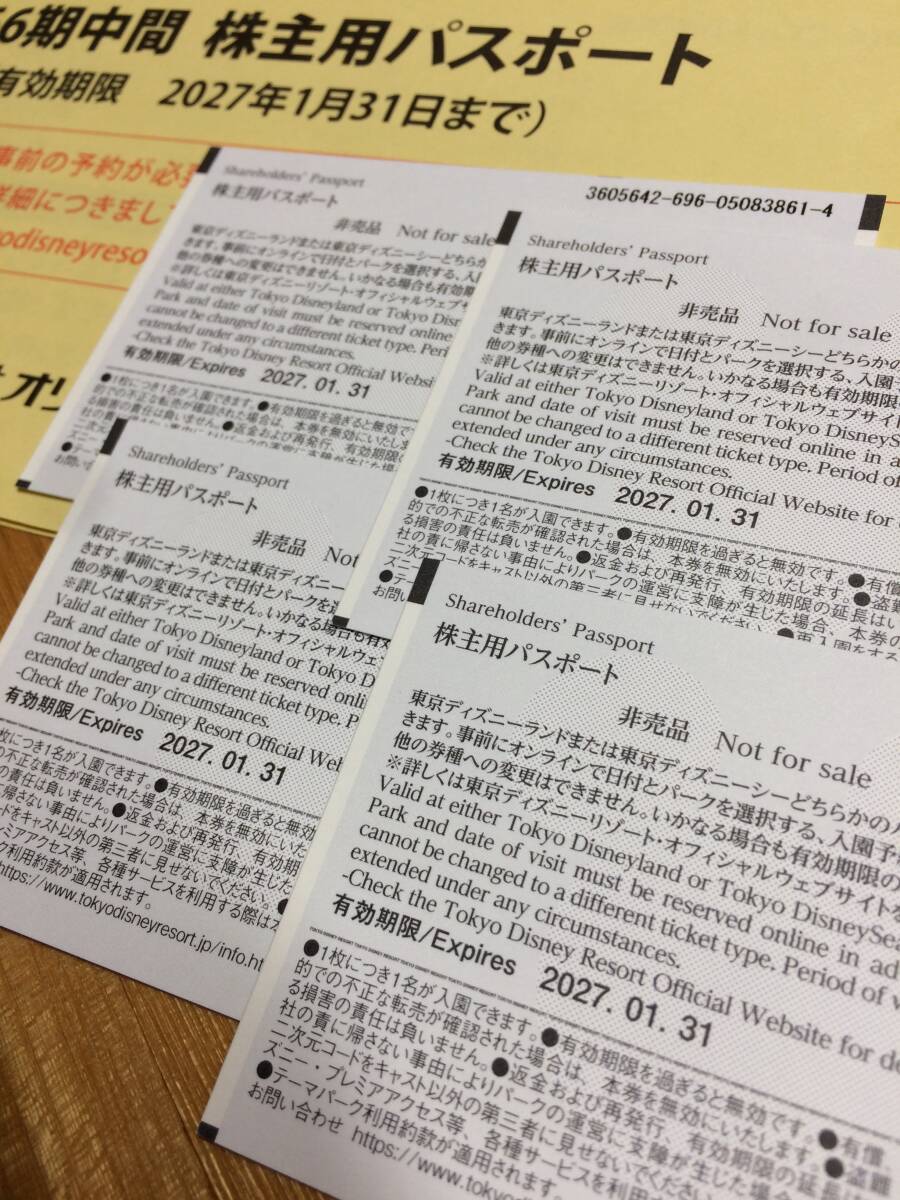 6期中間 株主用パスポート
有効期限 2027年1月31日まで)
事前の予約が必
詳細につきまし
odisneyreso
オリ
3605642-696-05083861-4
Shareholders' Passport
株主用パスポート
非売品 Not for sale
東京ディズニーランドまたは東京ディズニーシーどちらか
きます。事前にオンラインで日付とパークを選択する、入
他の券種への変更はできません。いかなる場合も有効期
※詳しくは東京ディズニーリゾート・オフィシャルウェブサ
Valid at either Tokyo Disneyland or Tokyo Disn
Park and date of visit must be reserved online
cannot be changed to a different ticket type. Period
extended under any circumstances.
-Check the Tokyo Disney Resort Official Website
有効期限/Expires 2027. 01. 31
●1枚につき1名が入園できます。●有効期限を過ぎると無
的での不正な転売が確認された場合は、本券を無効にいたしま
る損害の責任は負いません。●返金および再発行、有効期限の
Shareholders' Passport
株主用パスポート
非売品 Not for sale
東京ディズニーランドまたは東京ディズニーシーどちらかの
きます。事前にオンラインで日付とパークを選択する、入園
他の券種への変更はできません。いかなる場合も有効期限
※詳しくは東京ディズニーリゾート・オフィシャルウェブサイト
Valid at either Tokyo Disneyland or Tokyo DisneySe
Park and date of visit must be reserved online in a
cannot be changed to a different ticket type. Period of
extended under any circumstances.
-Check the Tokyo Disney Resort Official Website for
有効期限/Expires 2027. 01. 31
●1枚につき1名が入園できます。●有効期限を過ぎると無効です。●有償
的での不正な転売が確認された場合は、本券を無効にいたします。●盗難
る損害の責任は負いません。●返金および再発行、有効期限の延長はい
社の責に帰さない事由によりパークの運営に支障が生じた場合、本券の
二次元コードをキャスト以外の第三者に見せないでください。
Shareholders' Passport
株主用パスポート
非売品 Not
東京ディズニーランドまたは東京ディズニー
きます。事前にオンラインで日付とパークを選
他の券種への変更はできません。いかなる場合も有
※詳しくは東京ディズニーリゾート・オフィシャルウェ
Valid at either Tokyo Disneyland or Tokyo D
Park and date of visit must be reserved onli
cannot be changed to a different ticket type. P
extended under any circumstances.
-Check the Tokyo Disney Resort Official Web
有効期限/Expires 2027. 01. 31
枚につき1名が入園できます。●有効期限を過ぎると無効
の不正な転売が確認された場合は、本券を無効にいた
の責任は負いません。●返金および再発行、有効期
帰さない事由によりパークの運営に支障が生じた
コードをキャスト以外の第三者に見せないでください。
レミアアクセス等、各種サービスを利用する際は
ク利用約款が適用されます。
https://www.tokyodisneyresort.jp/info.ht
Shareholders' Passport
株主用パスポート
非売品 Not for sale
東京ディズニーランドまたは東京ディズニーシーどちらかの
きます。事前にオンラインで日付とパークを選択する、入園予
他の券種への変更はできません。いかなる場合も有効期限の
※詳しくは東京ディズニーリゾート・オフィシャルウェブサイトを
Valid at either Tokyo Disneyland or Tokyo DisneySea
Park and date of visit must be reserved online in ad
cannot be changed to a different ticket type. Period of v
extended under any circumstances.
-Check the Tokyo Disney Resort Official Website for de
有効期限/Expires 2027. 01. 31
●1枚につき1名が入園できます。●有効期限を過ぎると無効です。●有償、
的での不正な転売が確認された場合は、本券を無効にいたします。●盗難
る損害の責任は負いません。●返金および再発行、有効期限の延
社の責に帰さない事由によりパークの運営に支障が生じた場
二次元コードをキャスト以外の第三者に見せないでくださ
ズニー・プレミアアクセス等、各種サービスを利用する
●テーマパーク利用約款が適用されます。
お問い合わせ https://www.tokyod